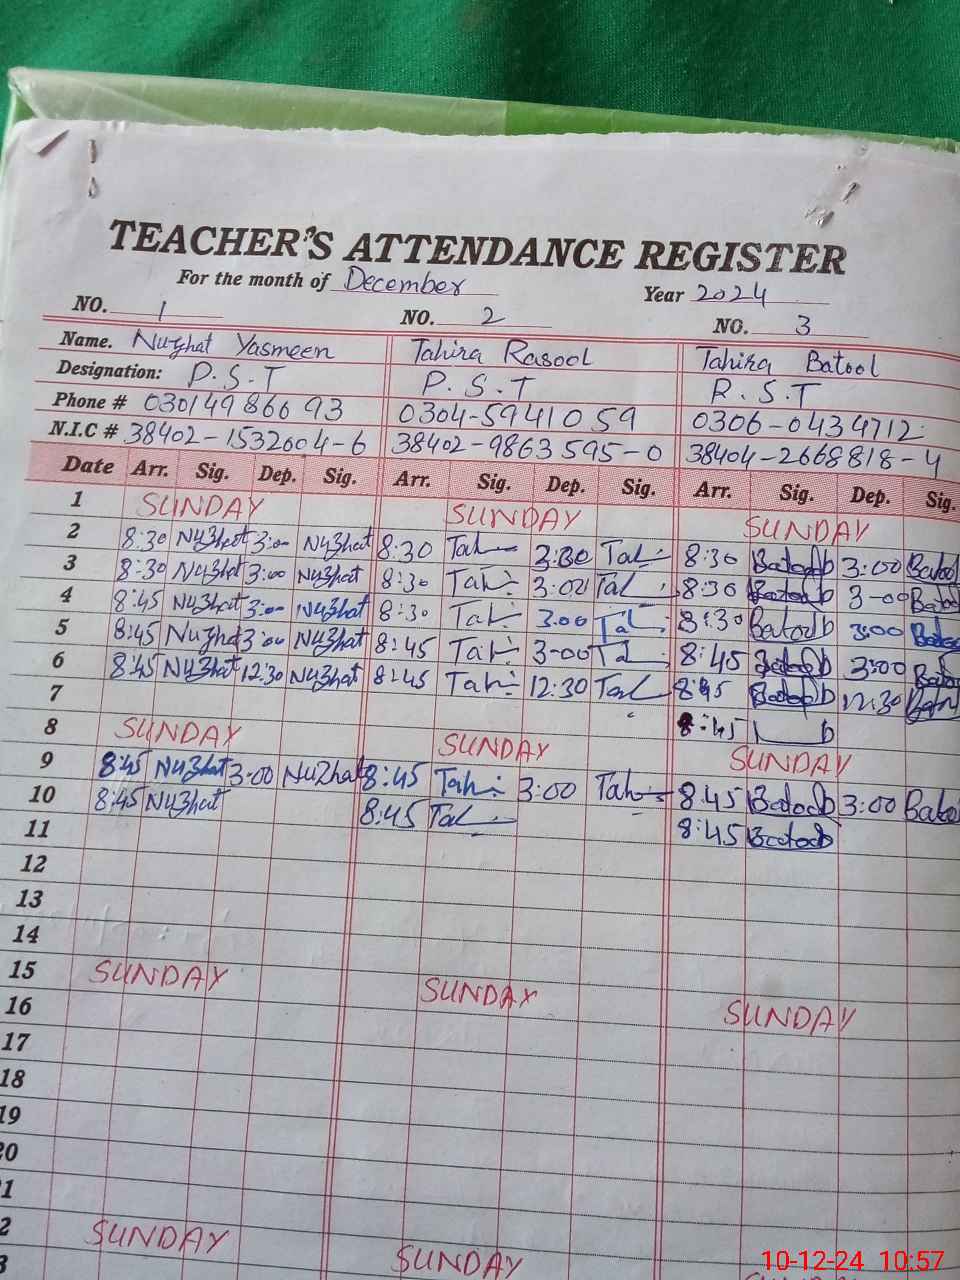 TEACHER'S ATTENDANCE REGISTER
For the month of December Year 2024
NO. 1 NO. 2 NO. 3
Name. Nuzhat Yasmeen Tahira Rasool Tahira Batool
Designation: P.S.T P.S.T P.S.T
Phone # 03014986693 0304-5941059 0306-0434712
N.I.C # 38402-1532604-6 38402-9863595-0 38404-2668818-4
Date Arr. Sig. Dep. Sig. Arr. Sig. Dep. Sig. Arr. Sig. Dep. Sig.
1 SUNDAY SUNDAY SUNDAY
2 8:30 Nuzhat 3:00 Nuzhat 8:30 Tah 3:00 Tah 8:30 Batool 3:00 Batool
3 8:30 Nuzhat 3:00 Nuzhat 8:30 Tah 3:00 Tah 8:30 Batool 3-00 Batool
4 8:45 Nuzhat 3:00 Nuzhat 8:30 Tah 3.00 Tah 8:30 Batool 3:00 Batool
5 8:45 Nuzhat 3:00 Nuzhat 8:45 Tah 3-00 Tah 8:45 Batool 3:00 Batool
6 8:45 Nuzhat 12:30 Nuzhat 8:45 Tah 12:30 Tah 8:45 Batool 12:30 Batool
7 8:45
8 SUNDAY SUNDAY SUNDAY
9 8:45 Nuzhat 3:00 Nuzhat 8:45 Tah 3:00 Tah 8:45 Batool 3:00 Batool
10 8:45 Nuzhat 8:45 Tah 8:45 Batool
11
12
13
14
15 SUNDAY SUNDAY SUNDAY
16
17
18
19
20
1
2 SUNDAY SUNDAY
3
10-12-24 10:57